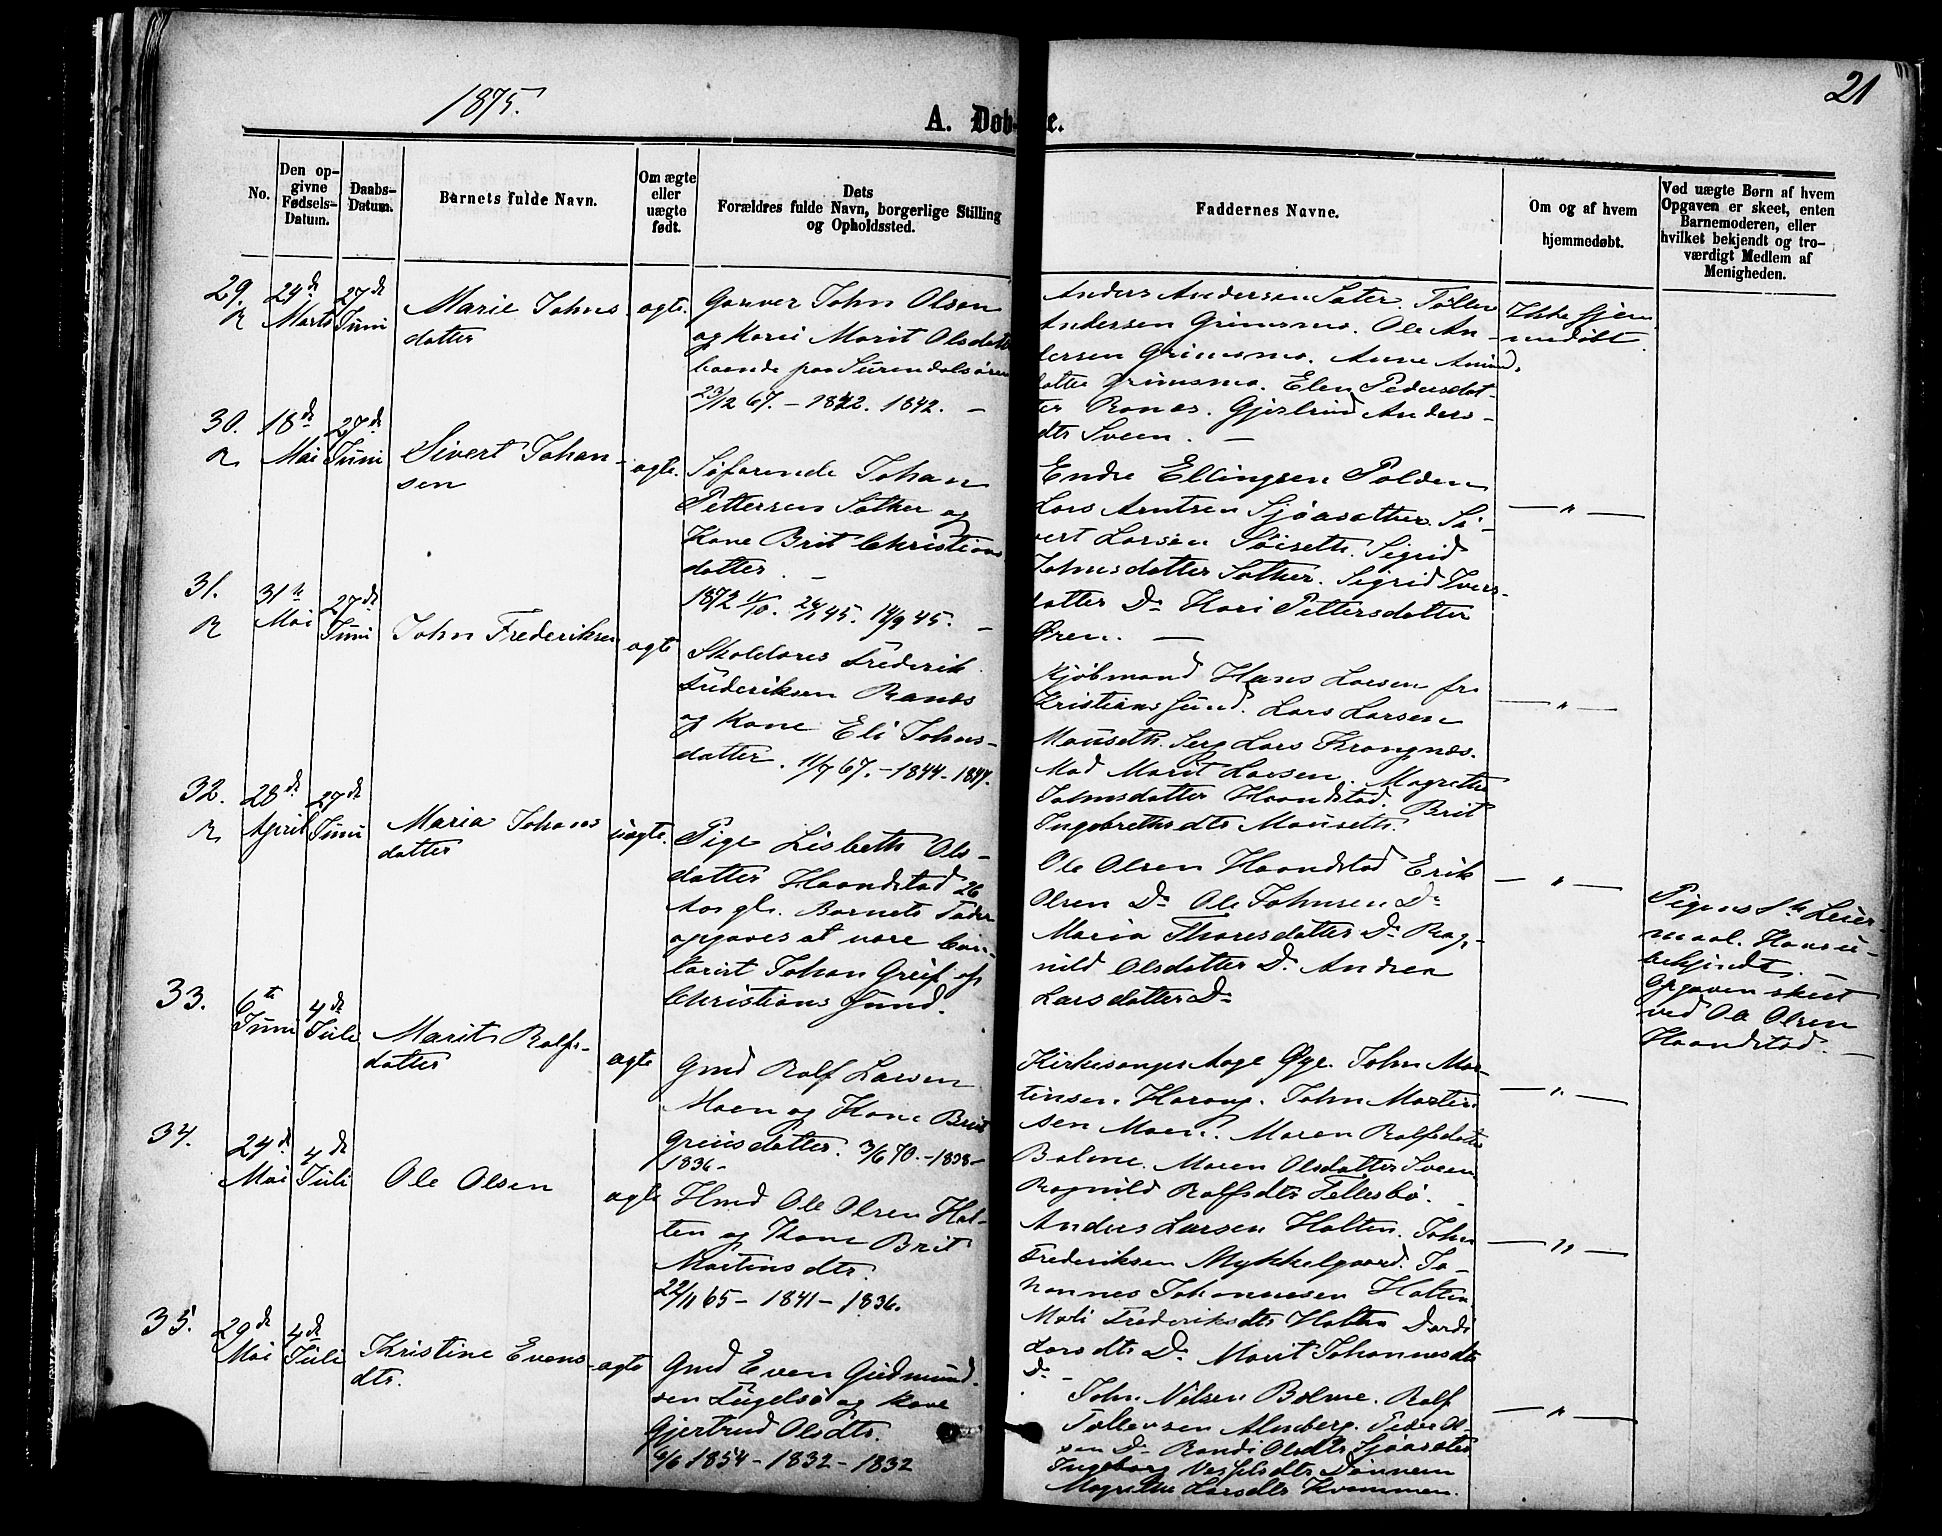 1875.
21
A. Døb
e.
No.
Den op-
givne
Fødsels-
Datum.
Daabs-
Datum.
Barnets fulde Navn.
Om ægte
eller
uægte
født.
Dets
Forældres fulde Navn, borgerlige Stilling
og Opholdssted.
Faddernes Navne.
Om og af hvem
hjemmedøbt.
Ved uægte Børn af hvem
Opgaven er skeet, enten
Barnemoderen, eller
hvilket bekjendt og tro-
værdigt Medlem af
Menigheden.
29.
R
24de
Marts
27de
Juni
Marie Johns
datter
ægte.
Garver John Olsen
og Kari Marit Olsdatt
boende paa Surendalsøren
23/12 67. – 1842. 1842. –
Anders Andersen Sæter. Tøllev
Andersen Grimsmo. Ole An-
dersen Grimsmo. Anne Amund.
datter Grimsmo. Elen Pedersdat-
ter Ranes. Gjertrud Anders-
dtr Sveen. –
Ikke hjem
medøbt.
30.
R
18de
Mai
27de
Juni
Sivert Johan-
sen
ægte.
Søfarende Johan
Pettersen Sæther og
Kone Brit Christians
datter. –
1872 11/10. 24/1 45. 14/9 45. –
Endre Ellingsen Polden
Lars Arntsen Sjøasæther. Si-
vert Larsen Søiseth. Sigrid
Johnsdatter Sæther. Sigrid Ivers-
datter Do Kari Pettersdatter
Øren. –
– " –
31.
R
31te
Mai
27de
Juni
John Frederiksen
ægte
Skolelærer Frederik
Frederiksen Ranes
og Kone Eli Johns-
datter. 11/7 67. – 1844 – 1847.
Kjøbmand Hans Larsen fr
Kristianssund. Lars Larsen
Mauseth. Serg Lars Krangnæs.
Mad Marit Larsen. Magrethe
Johnsdatter Haandstad. Brit
Ingebrethsdtr Mauseth.
– " –
32.
R
28de
April
27de
Juni
Maria Johans
datter
uægte.
Pige Lisbeth Ols-
datter Haandstad 26
Aar gl. Barnets Fader
opgaves at være
Johan Greif af
Christianssund.
Ole Olsen Haandstad Erik
Olsen Do Ole Johnsen Do
Maria Tharesdatter Do Rag-
nild Olsdatter Do Andrea
Larsdatter Do
– " –
Pigens 1te Leier
maal. Hans u-
bekjendt. –
Opgaven skeet
ved Ole Olsen
Haandstad. –
33.
6te
Juni
4de
Juli
Marit Rolfs-
datter
ægte
Gmd Rolf Larsen
Moen og Kone Brit
Greiisdatter. 3/6 70. – 1838 –
1836 –
Kirkesanger Aage Øye. John Mar-
tinsen Harang. John Martin
sen Moen. Maren Rolfsdatter
Bolme. Maren Olsdatter Sveen
Ragnild Rolfsdtr Tellesbø. –
– " –
34.
24de
Mai
4de
Juli
Ole Olsen
ægte
Hmd Ole Olsen Hal-
ten og Kone Brit
Martinsdtr.
22/11 65 – 1841 – 1836.
Anders Larsen Halten. John
Frederiksen Mykkelgaard. Jo-
hannes Johannesen Halten
Mali Frederiksdtr Halten Dordi
Larsdtr Do Marit Johannesdtr
Do –
– " –
35.
29de
Mai
4de
Juli
Kristine Evens-
dtr.
ægte
Gmd Even Gudmund-
sen Fugelsø og Kone
Gjertrud Olsdtr.
6/6 1854 – 1832 – 1832
John Nilsen Bolme. Rolf
Tøllevsen Almberg. Peder Ol-
sen Do Randi Olsdtr Sjøasæter
Ingeborg Dønnem
Magrethe Larsdtr Kvammen.
– " –